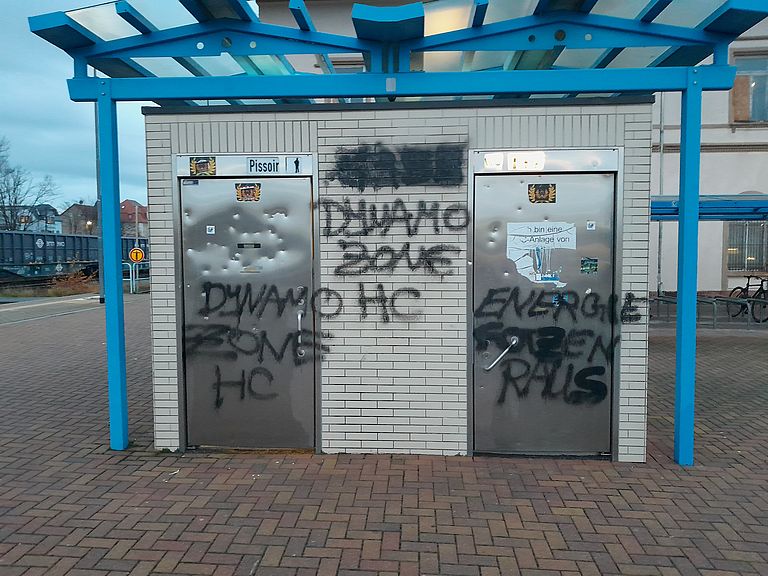 Pissoir
DYNAMO
ZONE
HC
DYNAMO
ZONE
HC
ich bin eine
Anlage von
ENERGIE
FOTZEN
RAUS
T